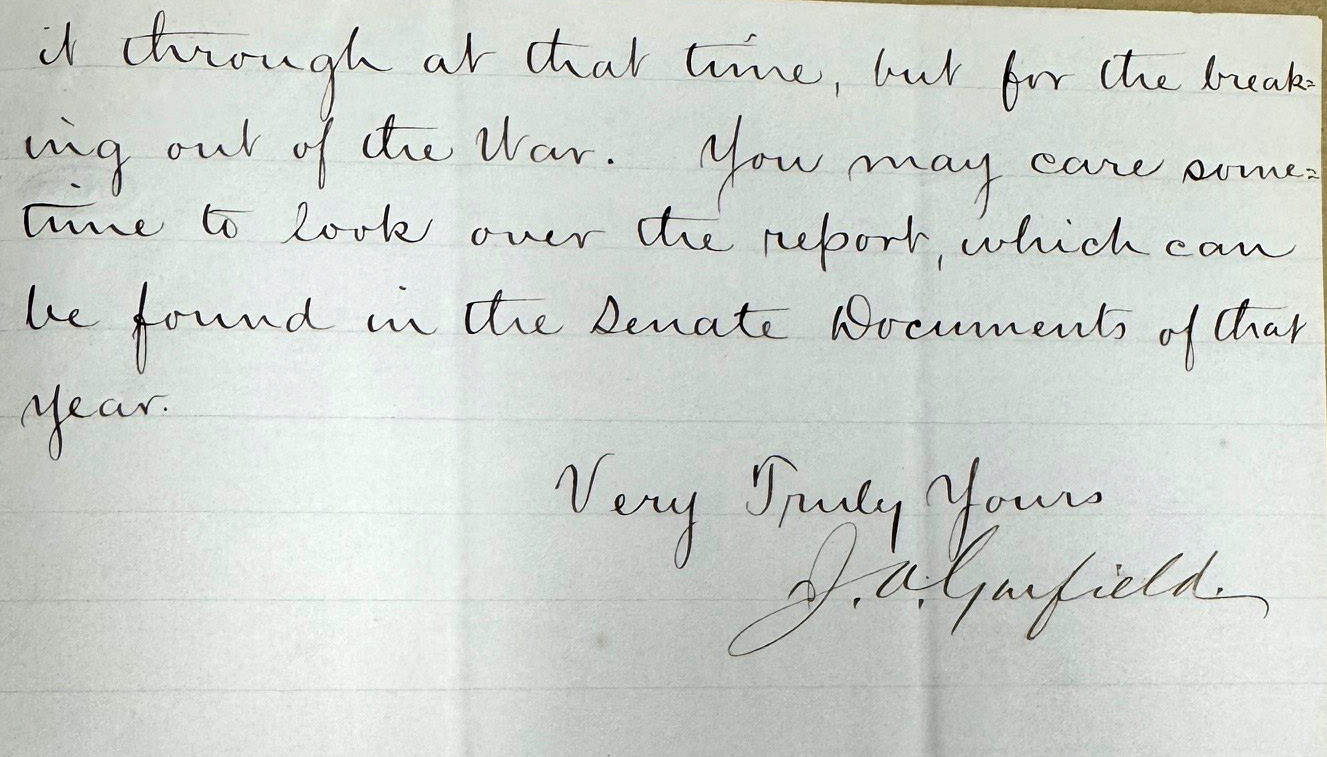 it through at that time, but for the break=
ing out of the War. You may care some=
time to look over the report, which can
be found in the Senate Documents of that
year.
Very Truly Yours
J. A. Garfield.